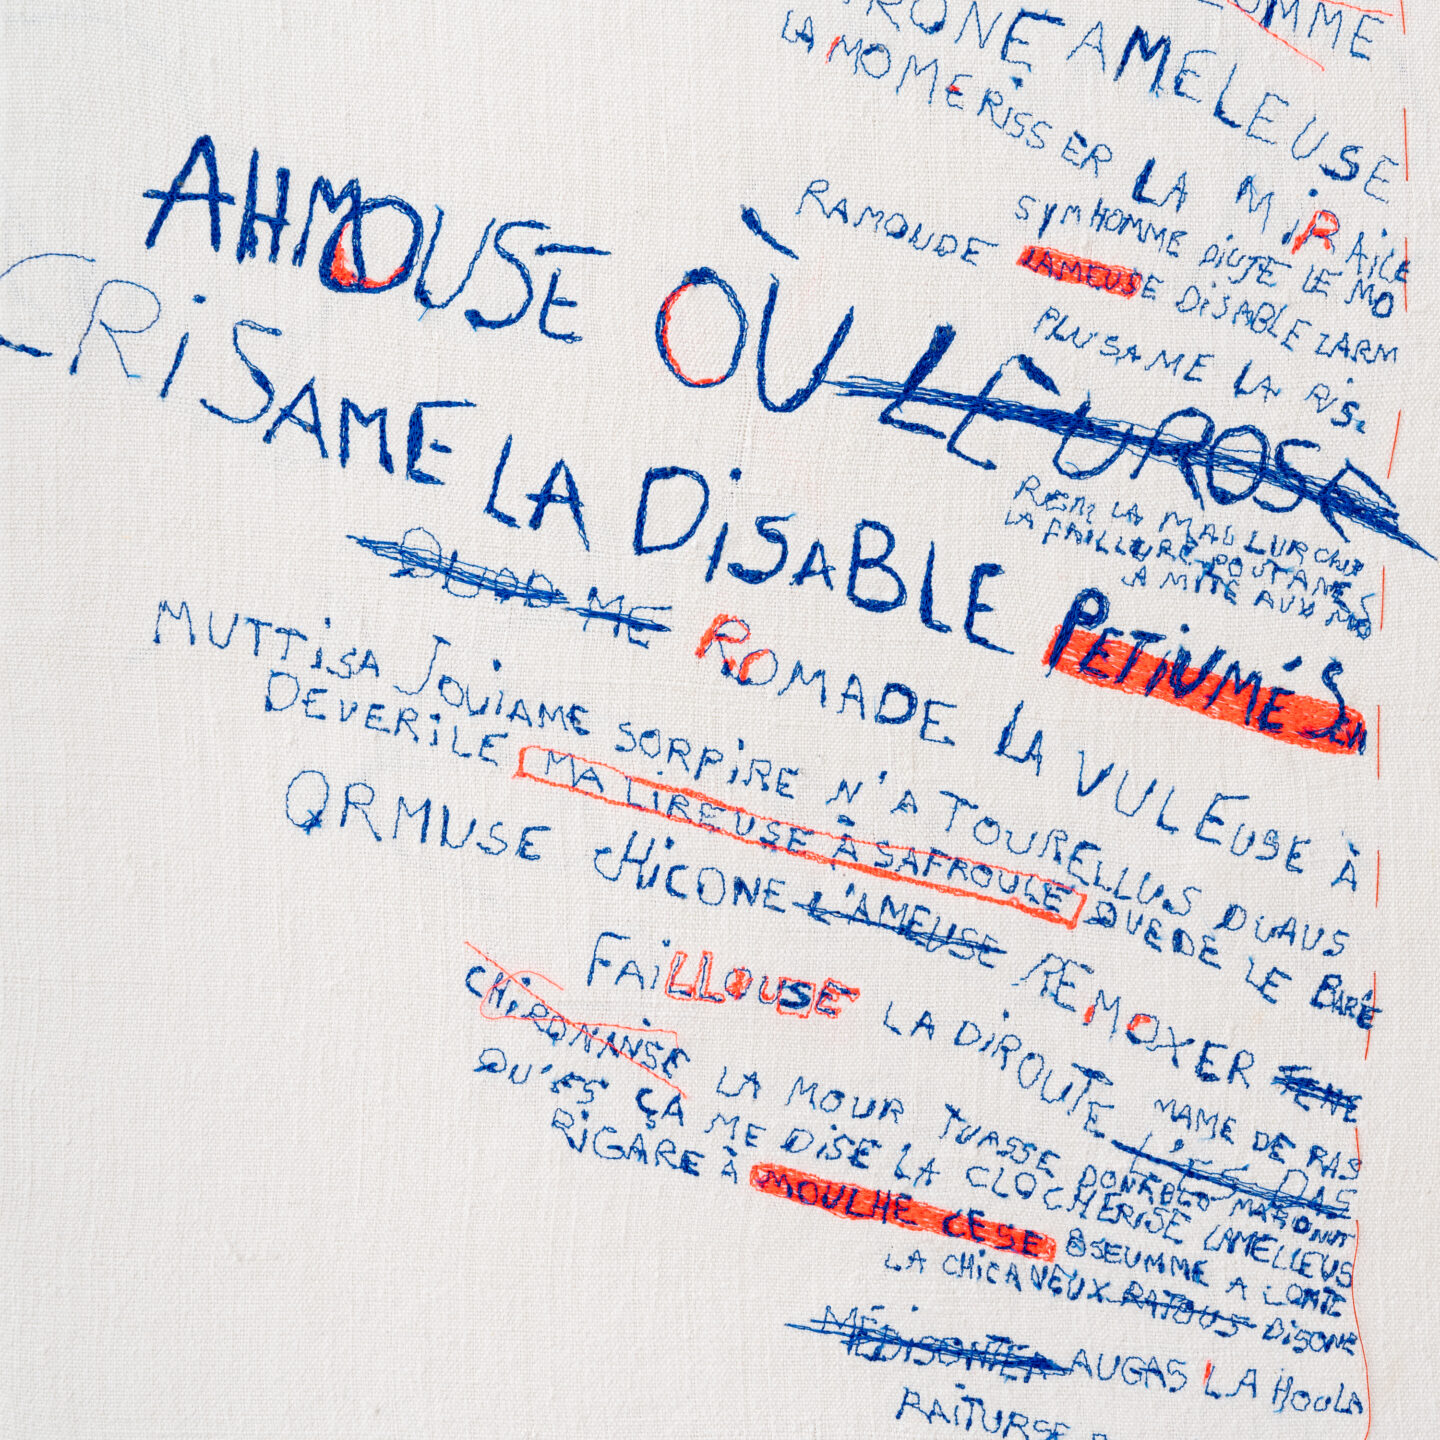 OMME
RONE AMELEUSE
LA MOMERISSER LA MIRAILE
SYMHOMME DIUJE LE MO
RAMOUDE LAMEUSE DISABLE ZARM
PLUSAME LA RIS.
AHMOUSE OÙ LÈUROSE
CRISAME LA DISABLE PETIUMÉ SEN
REGM LA MAL LURCHE
LA FAILLEURE POUTANES
LA MITE AUX MO
QUOD ME ROMADE LA VULEUSE À
MUTTISA JOUIAME SORPIRE N'A TOURELLUS DUAUS
DEVERILE MA LIREUSE À SAFROULE QUE DE LE BARÉ
QRMUSE CHICONE L'AMEUSE REMOXER TENE
FAILLOUSE LA DIROUTE MAME DE RAS
L'ES DAS
CHIRONANSE LA MOUR TUASSE MARONT
QU'ES ÇA ME DISE LA CLOCHERISE LAMELLEUS
RIGARE À MOULHE CESE 8SEUMME A LOMTE
LA CHICANEUX RATOUS DISONE
MÉDISONTER AUGAS LA HOULA
RAITURSE